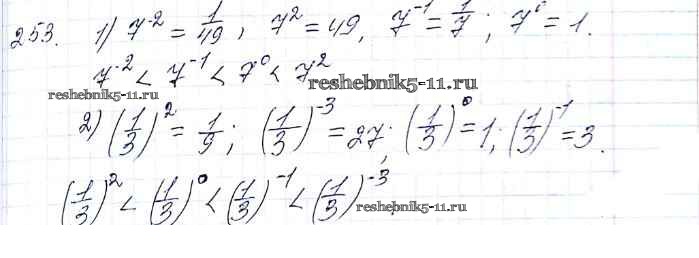 253. 1) 7⁻² = 1/49, 7² = 49, 7⁻¹ = 1/7; 7⁰ = 1.
7⁻² < 7⁻¹ < 7⁰ < 7²
reshebnik5-11.ru
reshebnik5-11.ru
2) (1/3)² = 1/9; (1/3)⁻³ = 27; (1/3)⁰ = 1; (1/3)⁻¹ = 3.
(1/3)² < (1/3)⁰ < (1/3)⁻¹ < (1/3)⁻³.
reshebnik5-11.ru